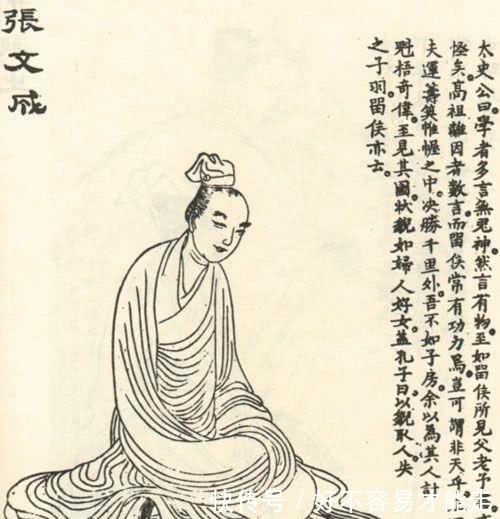 太史公曰學者多言無鬼神然言有物。至如留侯所見父老予
恠矣。高祖離困者數言。而留侯常有功力焉。豈可謂非天乎
夫運籌筴帷幄之中。決勝千里外。吾不如子房。余以為其人計
魁梧奇偉。至見其圖。狀貌如婦人好女。蓋孔子曰。以貌取人。失
之子羽。留侯亦云。
張文成
快传号 / 好不容易才能走